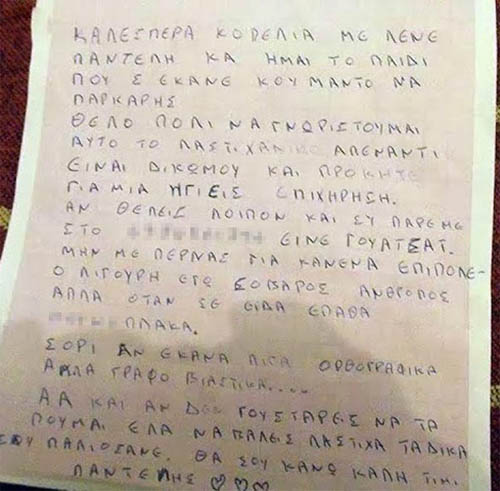 ΚΑΛΕΣΠΕΡΑ ΚΟΠΕΛΙΑ ΜΕ ΛΕΝΕ
ΠΑΝΤΕΛΗ ΚΑ ΗΜΑΙ ΤΟ ΠΑΙΔΙ
ΠΟΥ Σ ΕΚΑΝΕ ΚΟΥΜΑΝΤΟ ΝΑ
ΠΑΡΚΑΡΗΣ
ΘΕΛΟ ΠΟΛΙ ΝΑ ΓΝΩΡΙΣΤΟΥΜΑΙ
ΑΥΤΟ ΤΟ ΑΠΕΝΑΝΤΙ
ΕΙΝΑΙ ΔΙΚΩΜΟΥ ΚΑΙ
ΓΙΑ ΜΙΑ ΗΓΙΕΙΣ ΕΠΙΧΗΡΗΣΗ.
ΑΝ ΘΕΛΕΙΣ ΛΟΙΠΟΝ ΚΑΙ ΣΥ ΠΑΡΕ ΜΕ
ΣΤΟ ΕΙΝΕ ΓΟΥΑΤΣΑΠ.
ΜΗΝ ΜΕ ΠΕΡΝΑΣ ΓΙΑ ΚΑΝΕΝΑ ΕΠΙΠΟΛΕ-
Ο ΛΙΓΟΥΡΗ ΕΓΩ ΣΟΒΑΡΟΣ ΑΝΘΡΟΠΟΣ
ΑΛΛΑ ΟΤΑΝ ΣΕ ΕΙΔΑ ΕΠΑΘΑ
ΠΛΑΚΑ.
ΣΟΡΙ ΑΝ ΕΚΑΝΑ ΛΙΓΑ ΟΡΘΟΓΡΑΦΙΚΑ
ΑΛΛΑ ΓΡΑΦΟ ΒΙΑΣΤΙΚΑ.....
ΑΑ ΚΑΙ ΑΝ ΔΕΣ ΓΟΥΣΤΑΡΕΙΣ ΝΑ ΤΑ
ΠΟΥΜΑΙ ΕΛΑ ΝΑ ΒΑΛΕΙΣ ΛΑΣΤΙΧΑ ΤΑ ΔΙΚΑ
ΣΟΥ ΠΑΛΙΟΣΑΝΕ. ΘΑ ΣΟΥ ΚΑΝΩ ΚΑΛΗ ΤΙΜΙ.
ΠΑΝΤΕΛΗΣ ♡♡♡